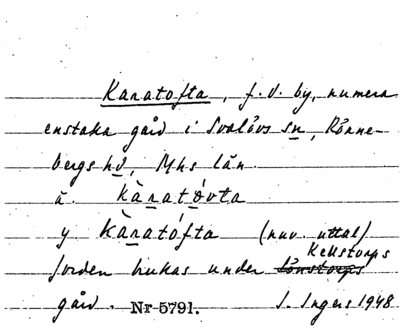 Kanatofta, f.d. by, numera
enstaka gård i Svalövs sn, Rönne-
bergs hd, Mhs län.
ä. kànatóvta
y kànatófta (nuv. uttal)
Kellstorps
Jorden brukas under lönstorps
gård. Nr 5791. I. Ingers 1948